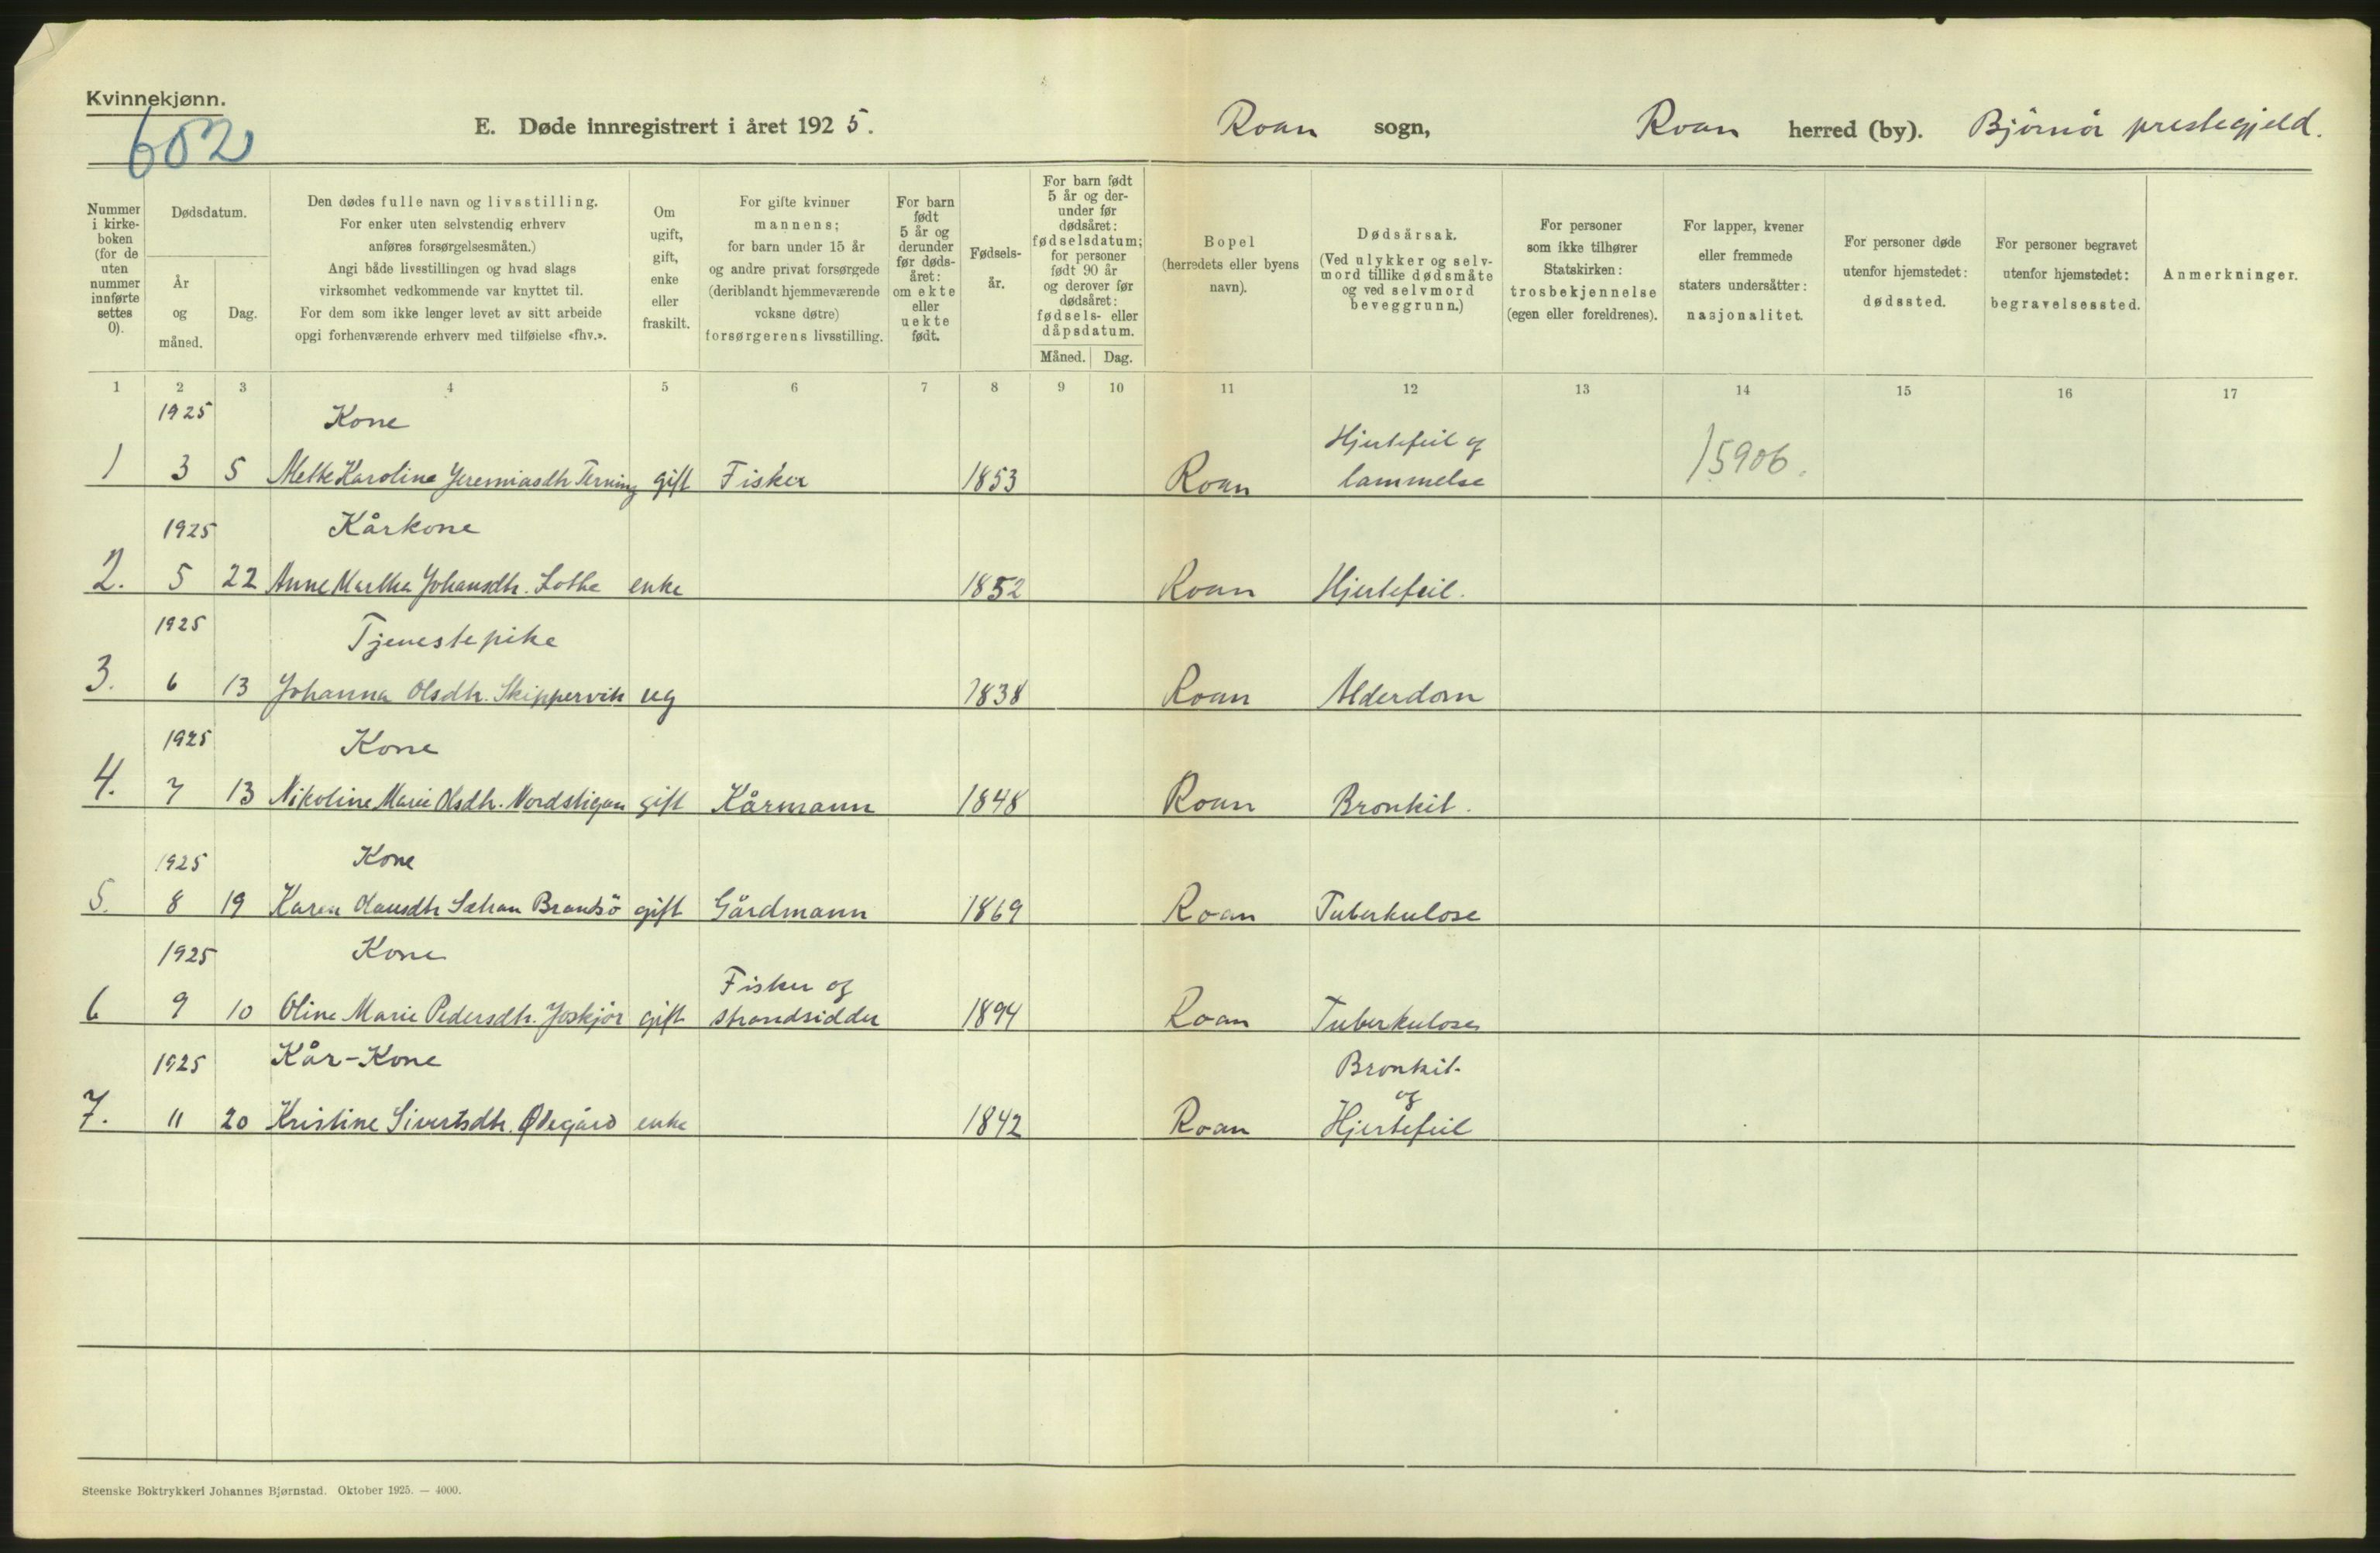 Kvinnekjønn.
602
E. Døde innregistrert i året 1925.
Roan sogn,
Roan herred (by). Bjørnør prestegjeld.
Nummer i kirkeboken (for de uten nummer innførte settes 0).
Dødsdatum.
År og måned.
Dag.
Den dødes fulle navn og livsstilling.
For enker uten selvstendig erhverv
anføres forsørgelsesmåten.)
Angi både livsstillingen og hvad slags
virksomhet vedkommende var knyttet til.
For dem som ikke lenger levet av sitt arbeide
opgi forhenværende erhverv med tilføielse «fhv.».
Om
ugift,
gift,
enke
eller
fraskilt.
For gifte kvinner
mannens;
for barn under 15 år
og andre privat forsørgede
(deriblandt hjemmeværende
voksne døtre)
forsørgerens livsstilling.
For barn
født
5 år og
derunder
før døds-
året:
om ekte
eller
uekte
født.
Fødsels-
år.
For barn født
5 år og der-
under før
dødsåret:
fødselsdatum;
for personer
født 90 år
og derover før
dødsåret:
fødsels- eller
dåpsdatum.
Måned. Dag.
Bopel
(herredets eller byens
navn).
Dødsårsak.
(Ved ulykker og selv-
mord tillike dødsmåte
og ved selvmord
beveggrunn.)
For personer
som ikke tilhører
Statskirken:
trosbekjennelse
(egen eller foreldrenes).
For lapper, kvener
eller fremmede
staters undersåtter:
nasjonalitet.
For personer døde
utenfor hjemstedet:
dødssted.
For personer begravet
utenfor hjemstedet:
begravelsessted.
Anmerkninger.
1 2 3 4 5 6 7 8 9 10 11 12 13 14 15 16 17
1925 Kone Hjertefeil og
1 3 5 Mette Karoline Jeremiasdtr Terning gift Fisker 1853 Roan lammelse 15906.
1925 Kårkone
2. 5 22 Anne Martha Johansdtr. Sothe enke 1852 Roan Hjertefeil.
1925 Tjenestepike
3. 6 13 Johanna Olsdtr. Skippervik ug 1838 Roan Alderdom
1925 Kone
4. 7 13 Nikoline Marie Olsdtr. Nordstigan gift Kårmann 1848 Roan Bronkit.
1925 Kone
5. 8 19 Karen Olausdtr Sætran Brandsö gift Gårdmann 1869 Roan Tuberkulose
1925 Kone Fisker og
6 9 10 Oline Marie Pedersdtr. Joskjör gift strandsidder 1894 Roan Tuberkulose
1925 Kår-Kone Bronkit-
og
7. 11 20 Kristine Sivertsdtr. Ødegård enke 1842 Roan Hjertefeil
Steenske Boktrykkeri Johannes Bjørnstad. Oktober 1925. — 4000.